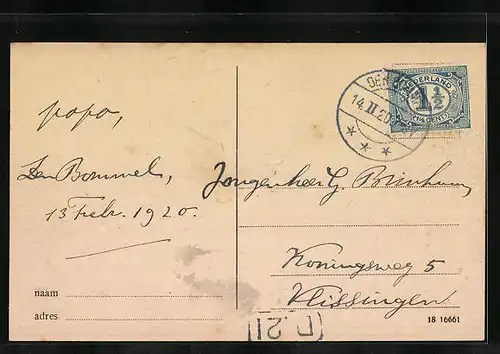 papa,
Den Bommel,
13 Febr. 1920.
naam
adres
NEDERLAND
1 1/2
CENT
14.II.20
Jongenheer G.
Koningsweg 5
Vlissingen
18 16661